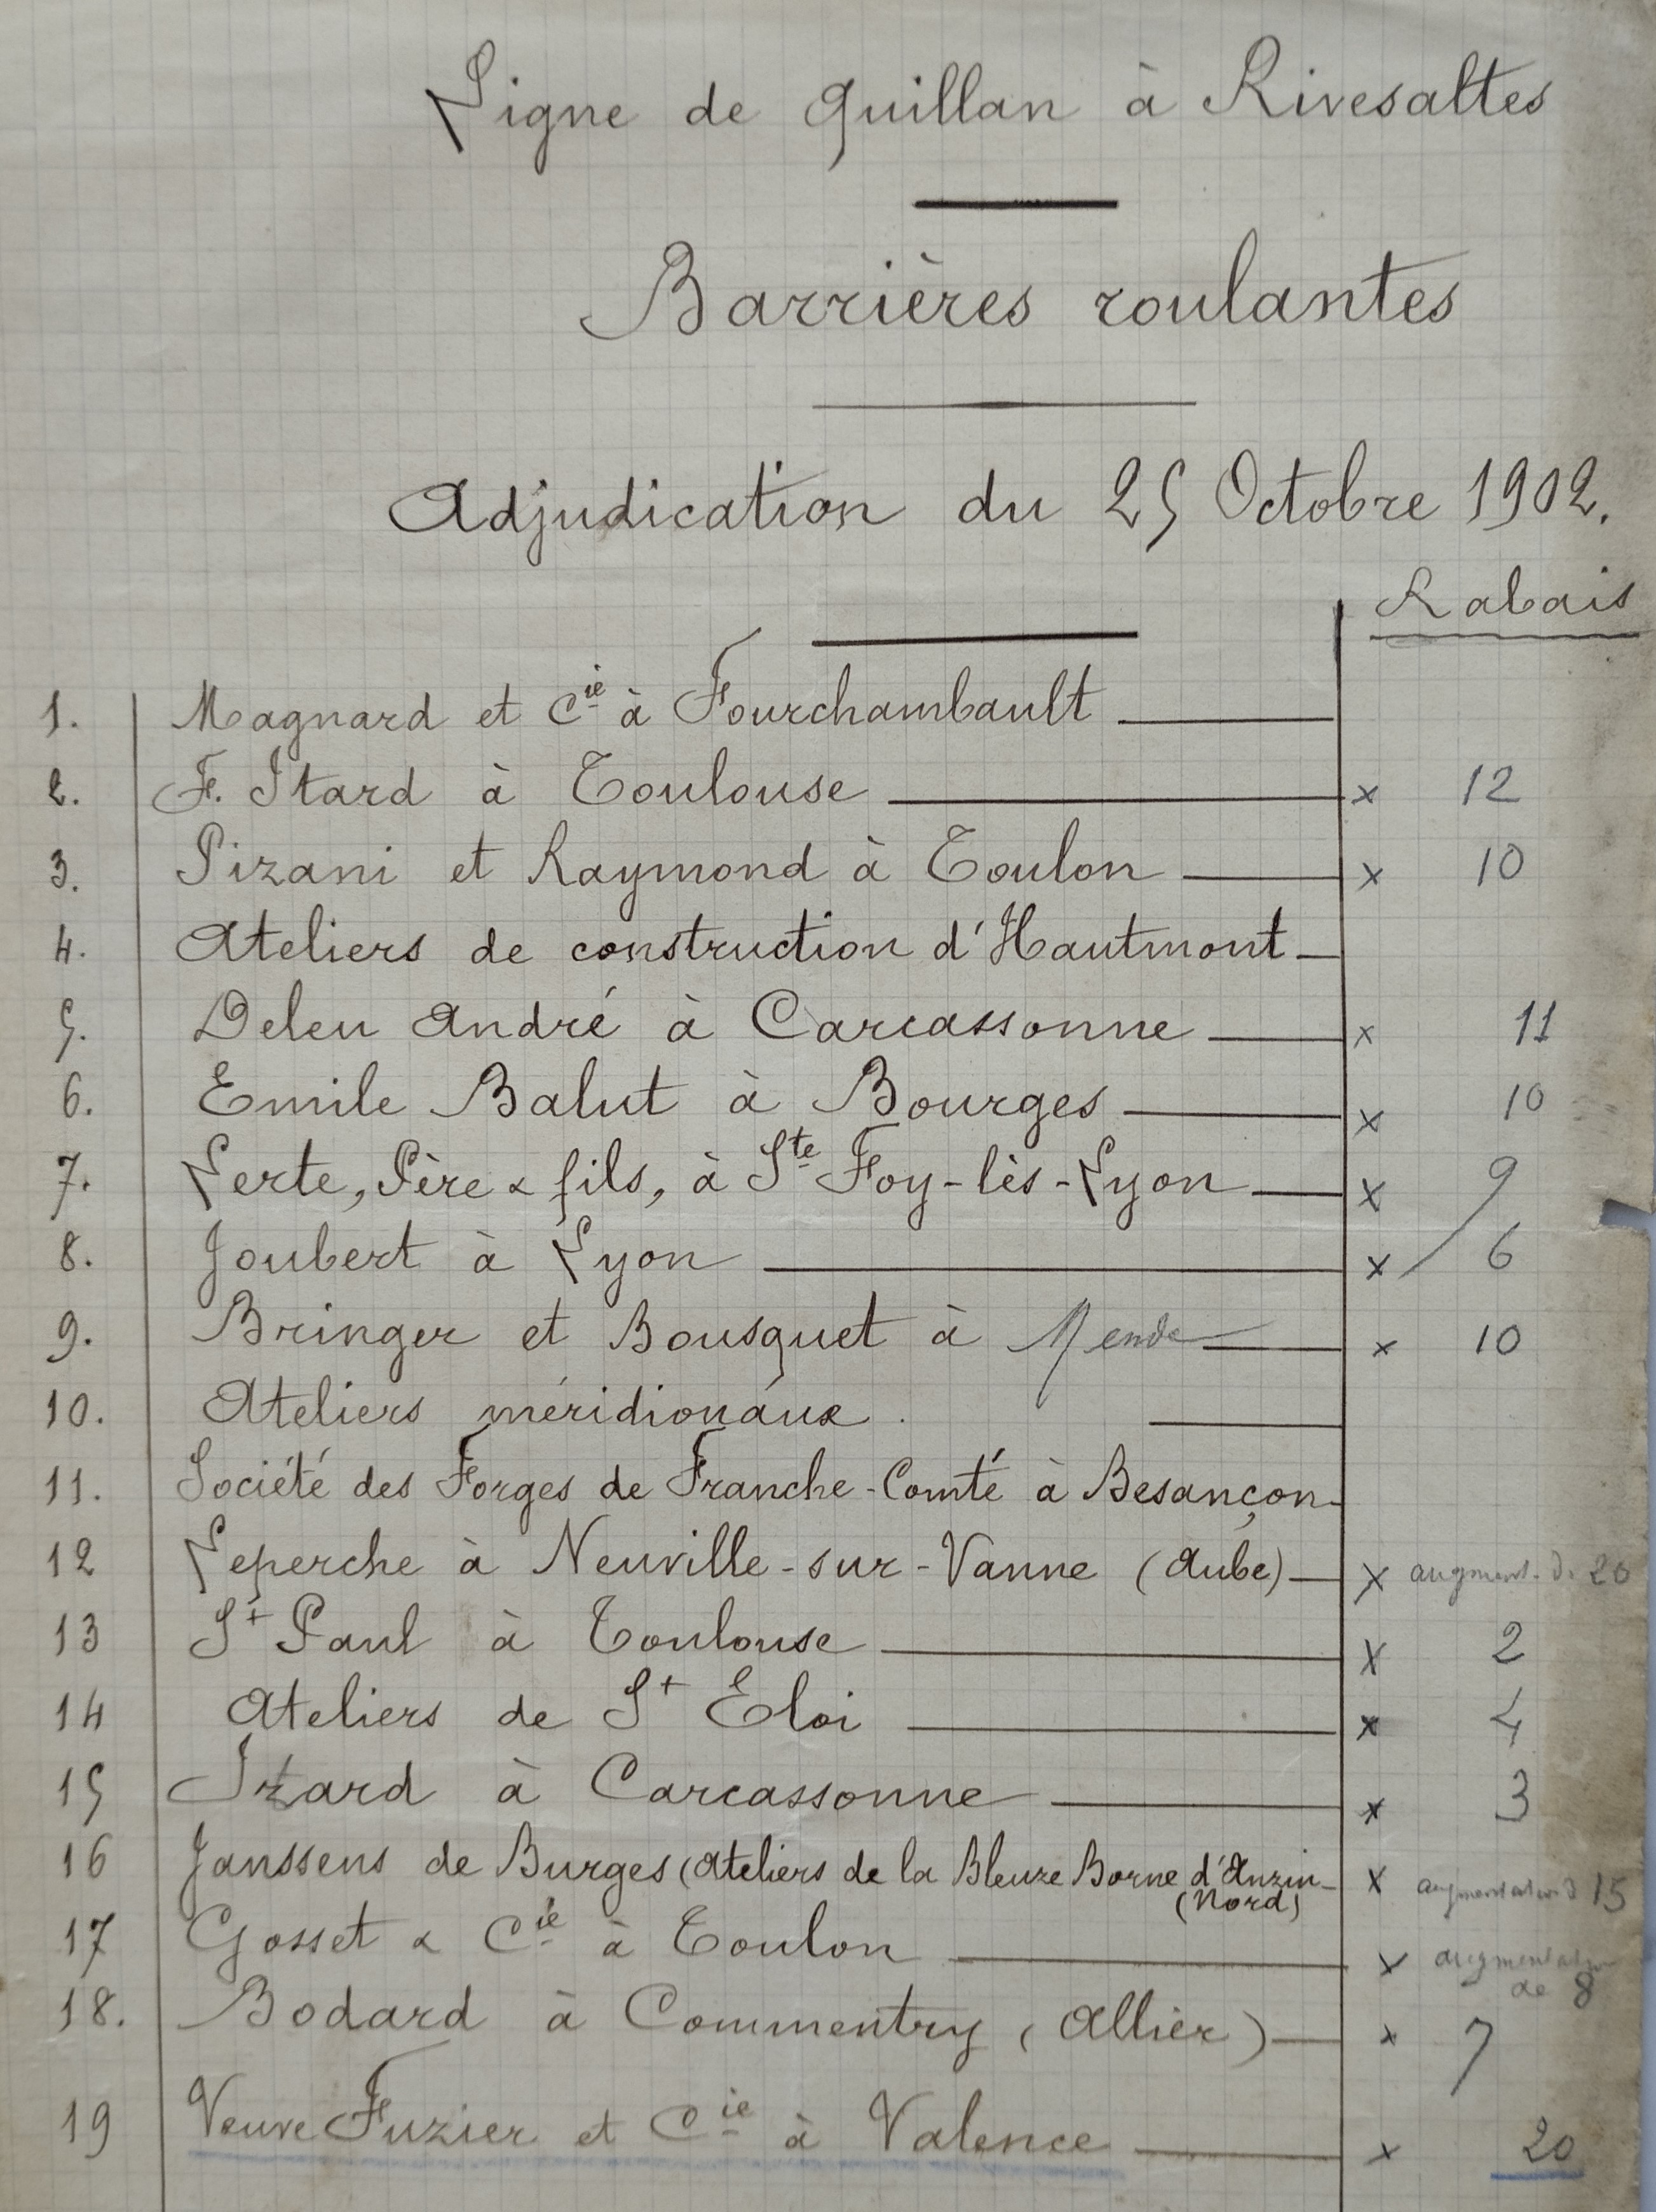 Ligne de Quillan à Rivesaltes
Barrières roulantes
Adjudication du 25 Octobre 1902.
Rabais
1. Magnard et Cie à Fourchambault
2. F. Itard à Toulouse x 12
3. Pizani et Raymond à Toulon x 10
4. Ateliers de construction d'Hautmont
5. Deleu André à Carcassonne x 11
6. Emile Balut à Bourges x 10
7. Lerte, Père & fils, à Ste Foy-lès-Lyon x 9
8. Joubert à Lyon x 6
9. Bringer et Bousquet à Mende x 10
10. Ateliers méridionaux.
11. Société des Forges de Franche-Comté à Besançon
12 Leperche à Neuville-sur-Vanne (Aube) x augment. de 20
13 St Paul à Toulouse x 2
14 Ateliers de St Eloi x 4
15 Izard à Carcassonne x 3
16 Janssens de Burges (Ateliers de la Bleuze Borne d'Anzin x augmentation de 15
(Nord)
17 Gosset & Cie à Toulon x augmentation
de 8
18. Bodard à Commentry (Allier) x 7
19 Veuve Fuzier et Cie à Valence x 20